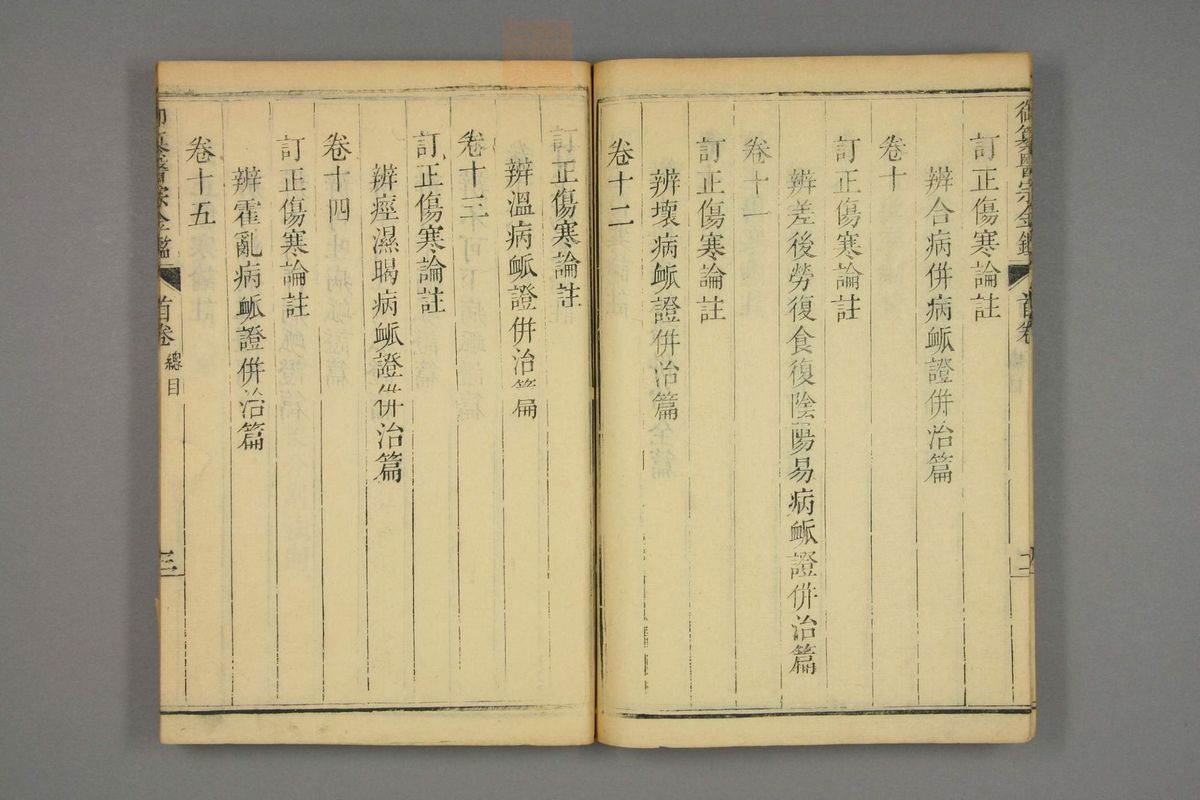 訂正傷寒論註
辨合病併病衇證併治篇
卷十
訂正傷寒論註
辨差後勞復食復陰陽易病衇證併治篇
卷十一
訂正傷寒論註
辨壞病衇證併治篇
卷十二
訂正傷寒論註
辨溫病衇證併治篇
卷十三
訂正傷寒論註
辨痙濕暍病衇證併治篇
卷十四
訂正傷寒論註
辨霍亂病衇證併治篇
卷十五
御纂醫宗金鑑
首卷
總目
三